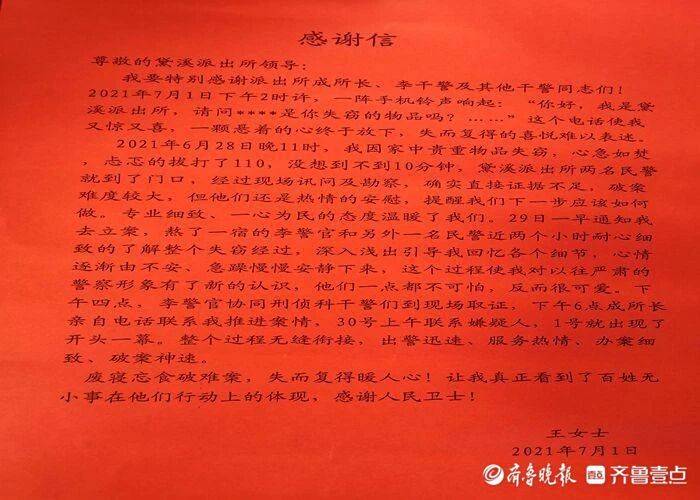 感谢信
尊敬的黛溪派出所领导：
我要特别感谢派出所成所长、李干警及其他干警同志们！
2021年7月1日下午2时许，一阵手机铃声响起：“你好，我是黛
溪派出所，请问****是你失窃的物品吗？……”这个电话使我
又惊又喜，一颗悬着的心终于放下，失而复得的喜悦难以表述。
2021年6月28日晚11时，我因家中贵重物品失窃，心急如焚
，忐忑的拔打了110，没想到不到10分钟，黛溪派出所两名民警
就到了门口，经过现场讯问及勘察，确实直接证据不足，破案
难度较大，但他们还是热情的安慰，提醒我们下一步应该如何
做。专业细致、一心为民的态度温暖了我们。29日一早通知我
去立案，熬了一宿的李警官和另外一名民警近两个小时耐心细
致的了解整个失窃经过，深入浅出引导我回忆各个细节，心情
逐渐由不安、急躁慢慢安静下来，这个过程使我对以往严肃的
警察形象有了新的认识，他们一点都不可怕，反而很可爱。下
午四点，李警官协同刑侦科干警们到现场取证，下午6点成所长
亲自电话联系我推进案情，30号上午联系嫌疑人，1号就出现了
开头一幕。整个过程无缝衔接，出警迅速、服务热情、办案细
致、破案神速。
废寝忘食破难案，失而复得暖人心！让我真正看到了百姓无
小事在他们行动上的体现，感谢人民卫士！
王女士
2021年7月1日
齐鲁晚报 壹点 齐鲁壹点